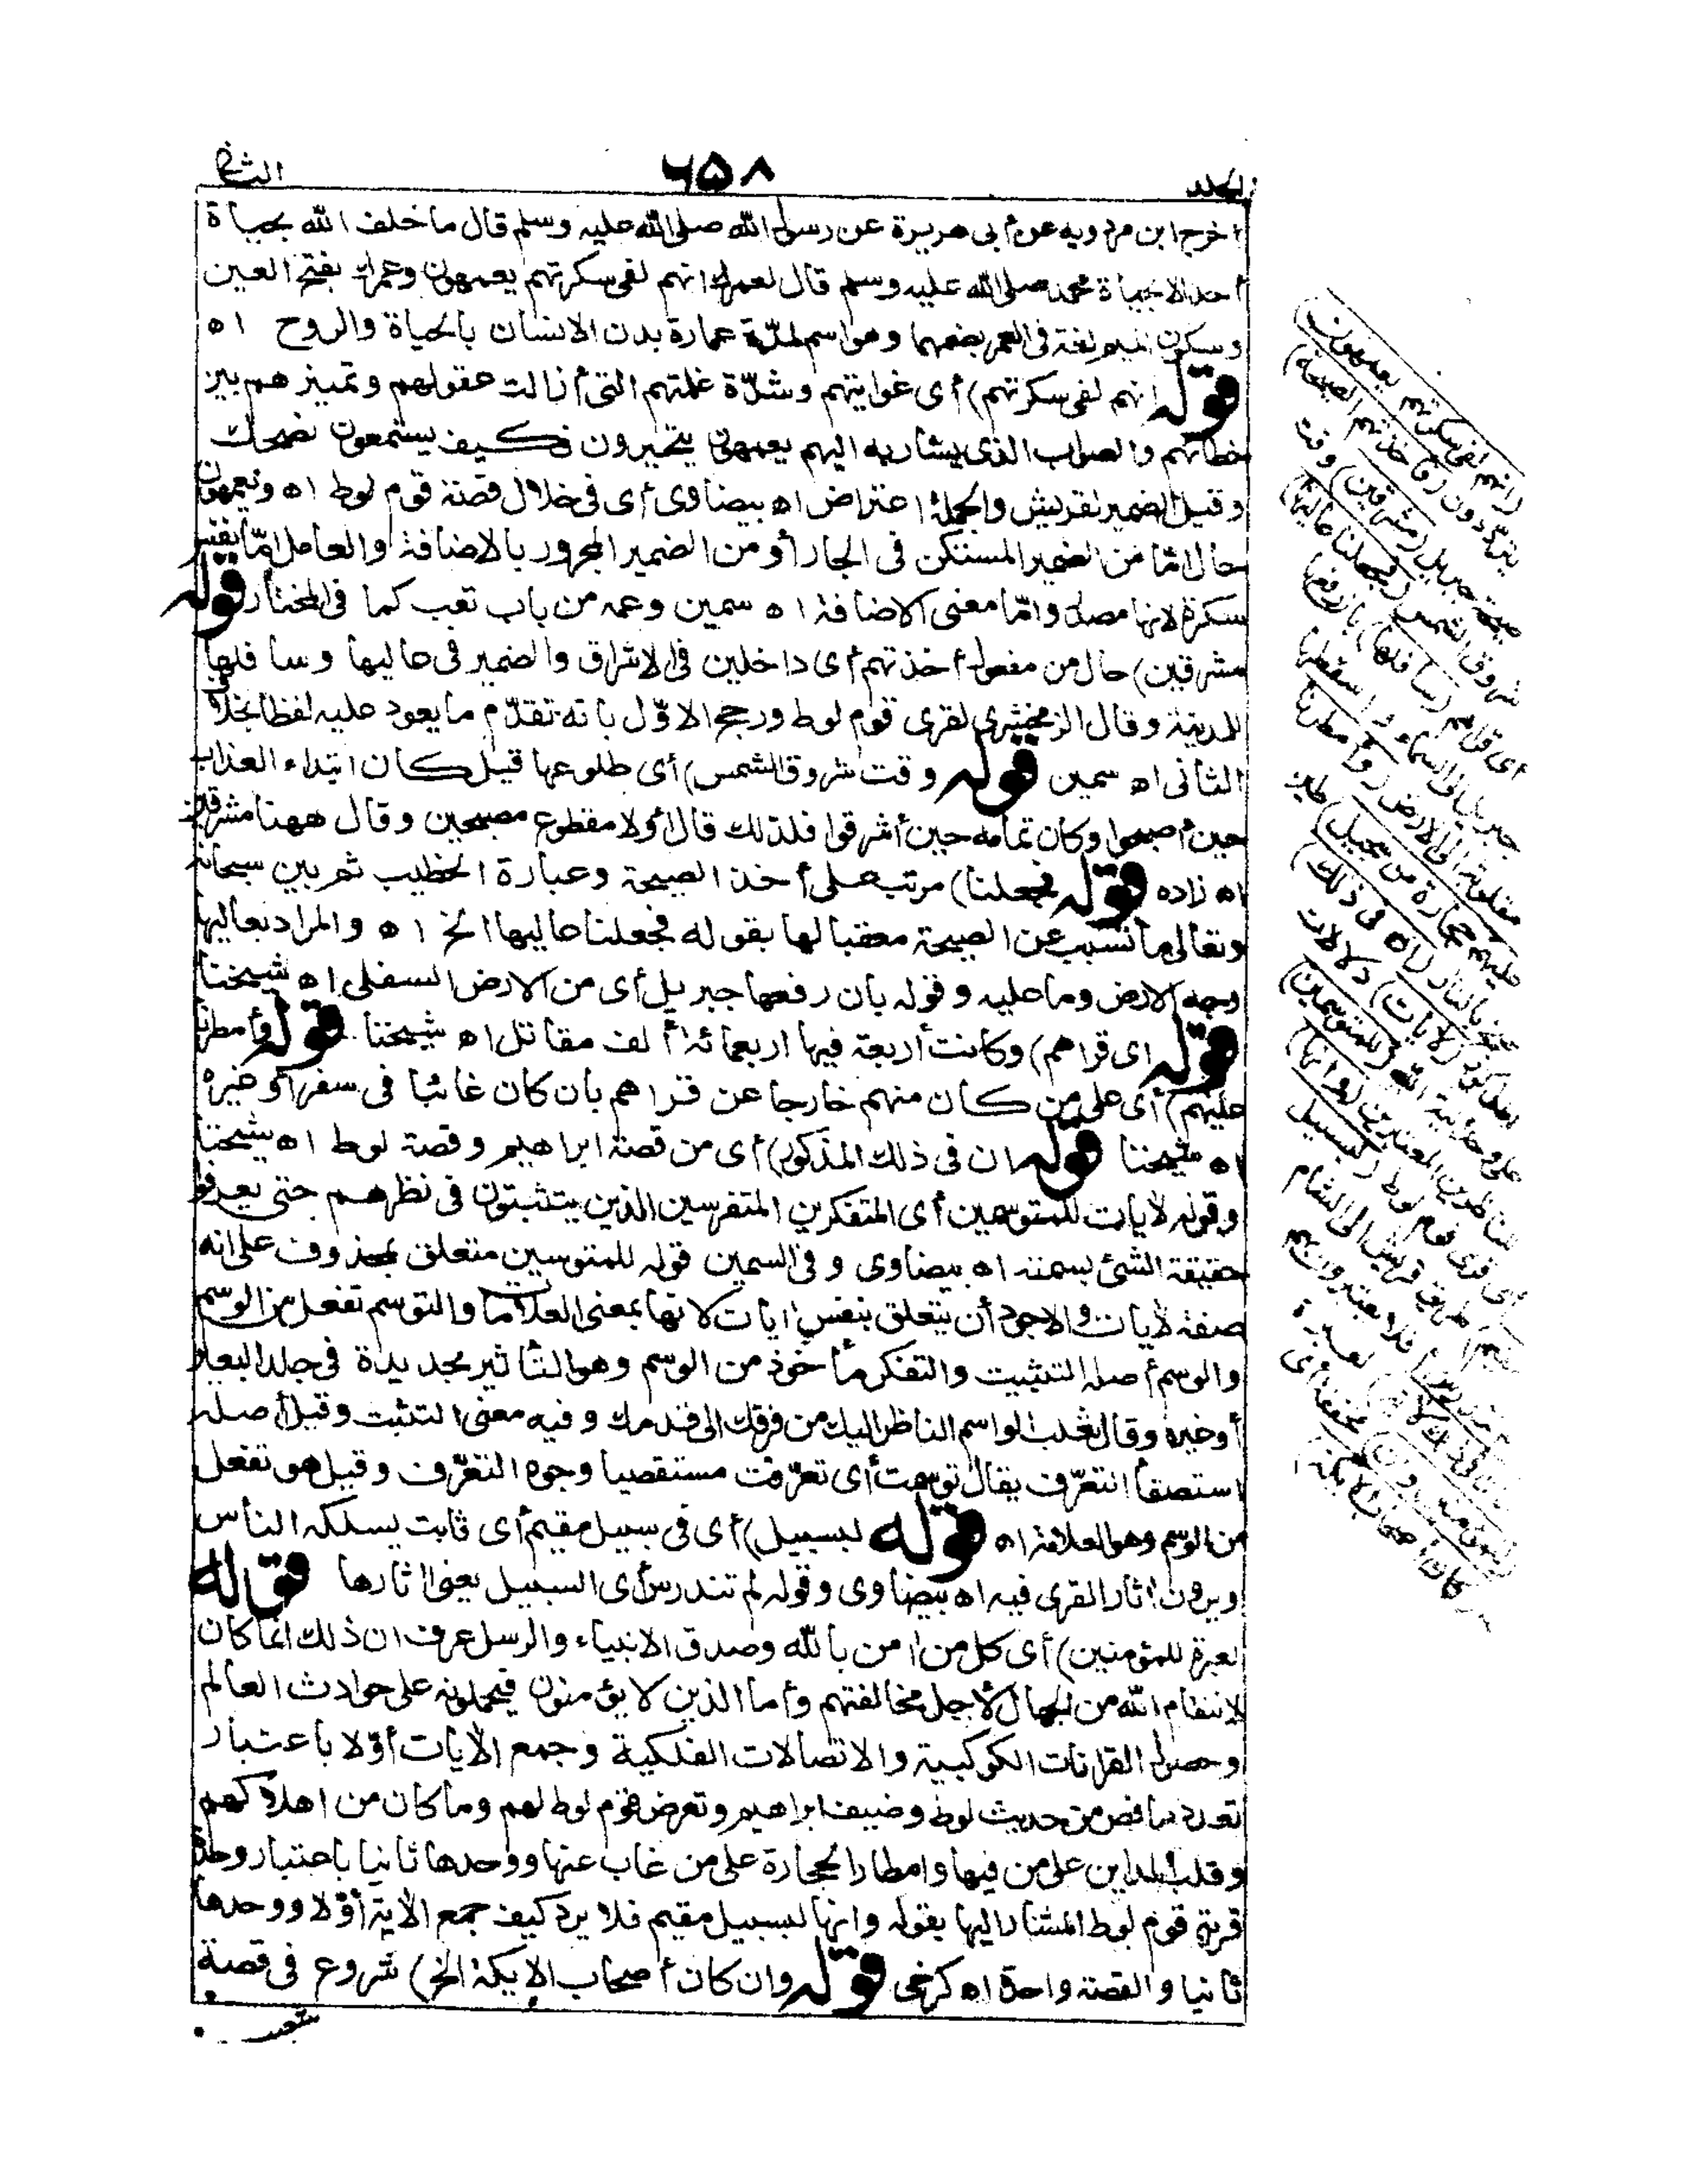 الجلد ۶۵۸ الثانی
أخرج ابن مردويه عن أبى هريرة عن رسول الله صلى الله عليه وسلم قال ما حلف الله بحياة
أحد الا بحياة محمد صلى الله عليه وسلم قال لعمرك انهم لفى سكرتهم يعمهون وعمرك بفتح العين
وسكون الميم لغة فى العمر بضمهما وهو اسم لمدّة عمارة بدن الانسان بالحياة والروح اه
قوله انهم لفى سكرتهم) أى غوايتهم وشدّة غلمتهم التى أزالت عقولهم وتمييزهم بين
خطائهم والصواب الذى يشار به اليهم يعمهون يتحيرون فكيف يستمعون نصحك
وقيل الضمير لقريش والجملة اعتراض اه بيضاوى أى فى خلال قصة قوم لوط اه ويعمهون
حال امّا من الضمير المستكن فى الجار أو من الضمير المجرور بالاضافة والعامل امّا نفس
سكرة لانها مصدر وامّا معنى الاضافة اه سمين وعمه من باب تعب كما فى المختار قوله
مشرقين) حال من مفعول أخذتهم أى داخلين فى الاشراق والضمير فى عاليها وسافلها
للمدينة وقال الزمخشرى لقرى قوم لوط ورجح الاوّل بانه تقدّم ما يعود عليه لفظا بخلاف
الثانى اه سمين قوله وقت شروق الشمس) أى طلوعها قيل كان ابتداء العذاب
حين أصبحوا وكان تمامه حين أشرقوا فلذلك قال أولا مقطوع مصبحين وقال ههنا مشرقين
اه زاده قوله فجعلنا) مرتب على أخذ الصيحة وعبارة الخطيب ثم بين سبحانه
وتعالى ما تسبب عن الصيحة معقبا لها بقوله فجعلنا عاليها الخ اه والمراد بعاليها
وجه الارض وما عليه وقوله بان رفعها جبريل أى من الارض السفلى اه شيخنا
قوله اى قراهم) وكانت أربعة فيها اربعمائة ألف مقاتل اه شيخنا قوله وأمطرنا
عليهم) أى على من كان منهم خارجا عن قراهم بان كان غائبا فى سفر أو غيره
اه شيخنا قوله ان فى ذلك المذكور) أى من قصة ابراهيم وقصة لوط اه شيخنا
وقوله لآيات للمتوسمين أى المتفكرين المتفرسين الذين يتثبتون فى نظرهم حتى يعرفوا
حقيقة الشئ بسمته اه بيضاوى وفى السمين قوله للمتوسمين متعلق بمحذوف على انه
صفة لآيات والاجود أن يتعلق بنفس آيات لانها بمعنى العلامات والتوسم تفعل من الوسم
والوسم أصله التثبيت والتفكر مأخوذ من الوسم وهو التأثير بحديدة فى جلد البعير
أو غيره وقال ثعلب الواسم الناظر اليك من فرقك الى قدمك وفيه معنى التثبت وقيل أصله
استقصاء التعرّف يقال توسمت أى تعرّفت مستقصيا وجوه التعرّف وقيل هو تفعل
من الوسم وهو العلامة اه قوله لبسبيل) أى فى سبيل مقيم أى ثابت يسلكه الناس
ويرون آثار القرى فيه اه بيضاوى وقوله لم تندرس أى السبيل يعنى آثارها قوله
لعبرة للمؤمنين) أى كل من آمن بالله وصدق الانبياء والرسل عرف ان ذلك انما كان
لانتقام الله من الجهال لأجل مخالفتهم وأما الذين لا يؤمنون فيحملونه على حوادث العالم
وحصول القرانات الكوكبية والاتصالات الفلكية وجمع الآيات أوّلا باعتبار
تعدد ما قص من حديث لوط وضيف ابراهيم وتعرض قوم لوط لهم وما كان من اهلاكهم
وقلب المداين على من فيها وامطار الحجارة على من غاب عنها ووحدها ثانيا باعتبار وحدة
قرية قوم لوط المشار اليها بقوله وانها لبسبيل مقيم فلا يرد كيف جمع الآية أوّلا ووحدها
ثانيا والقصة واحدة اه كرخى قوله وان كان أصحاب الايكة الخ) شروع فى قصة
شعيب
(انهم لفى سكرتهم يعمهون)
يترددون (فأخذتهم الصيحة)
صيحة جبريل (مشرقين) وقت
شروق الشمس (فجعلنا عاليها)
أى قراهم (سافلها) بان رفعها
جبريل الى السماء وأسقطها
مقلوبة الى الارض (وأمطرنا
عليهم حجارة من سجيل) طين
طبخ بالنار (ان فى ذلك)
المذكور (لآيات) دلالات
على وحدانية الله (للمتوسمين)
للناظرين المعتبرين (وانها)
أى قرى قوم لوط (لبسبيل
طريق قريش الى الشام
فلا يعتبرون بهم